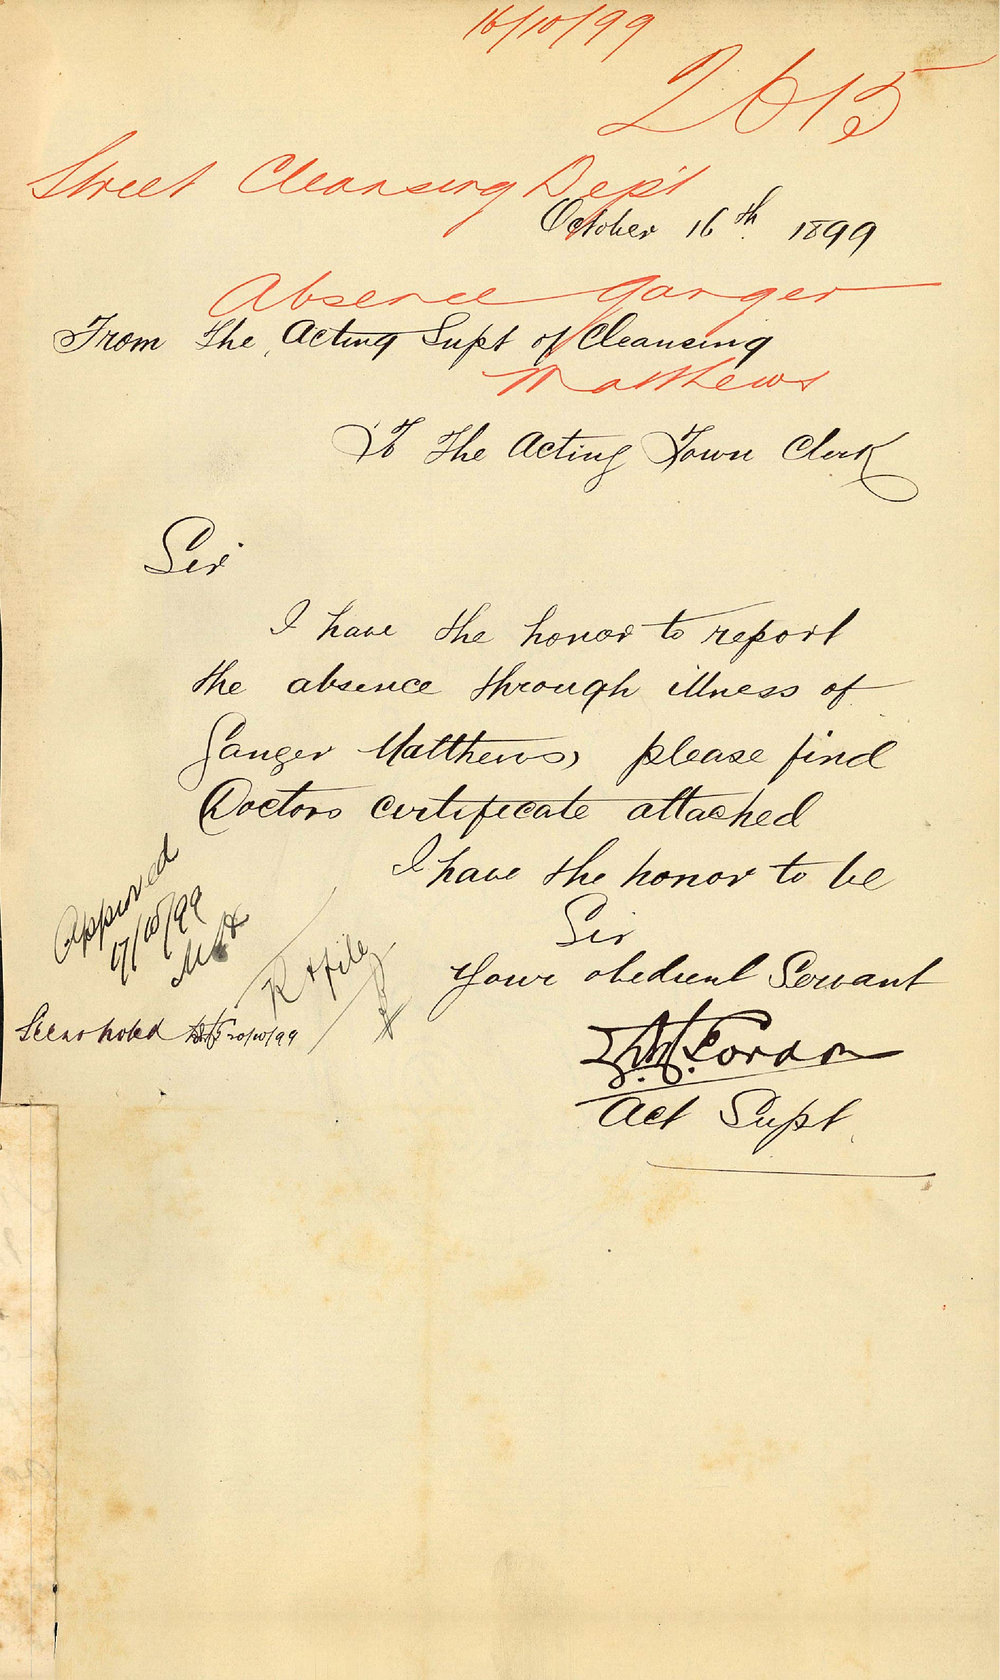 16/10/99
2615
Street Cleansing Dep't
October 16th. 1899
Absence Ganger
From the Acting Supt of Cleansing
Matthews
To The Acting Town Clerk
Sir
I have the honor to report
the absence through illness of
Ganger Matthews, please find
Doctors certificate attached
I have the honor to be
Sir
Your obedient Servant
Gordon
Act Supt.
Approved
17/10/99
R & file
Seen & noted 20/10/99